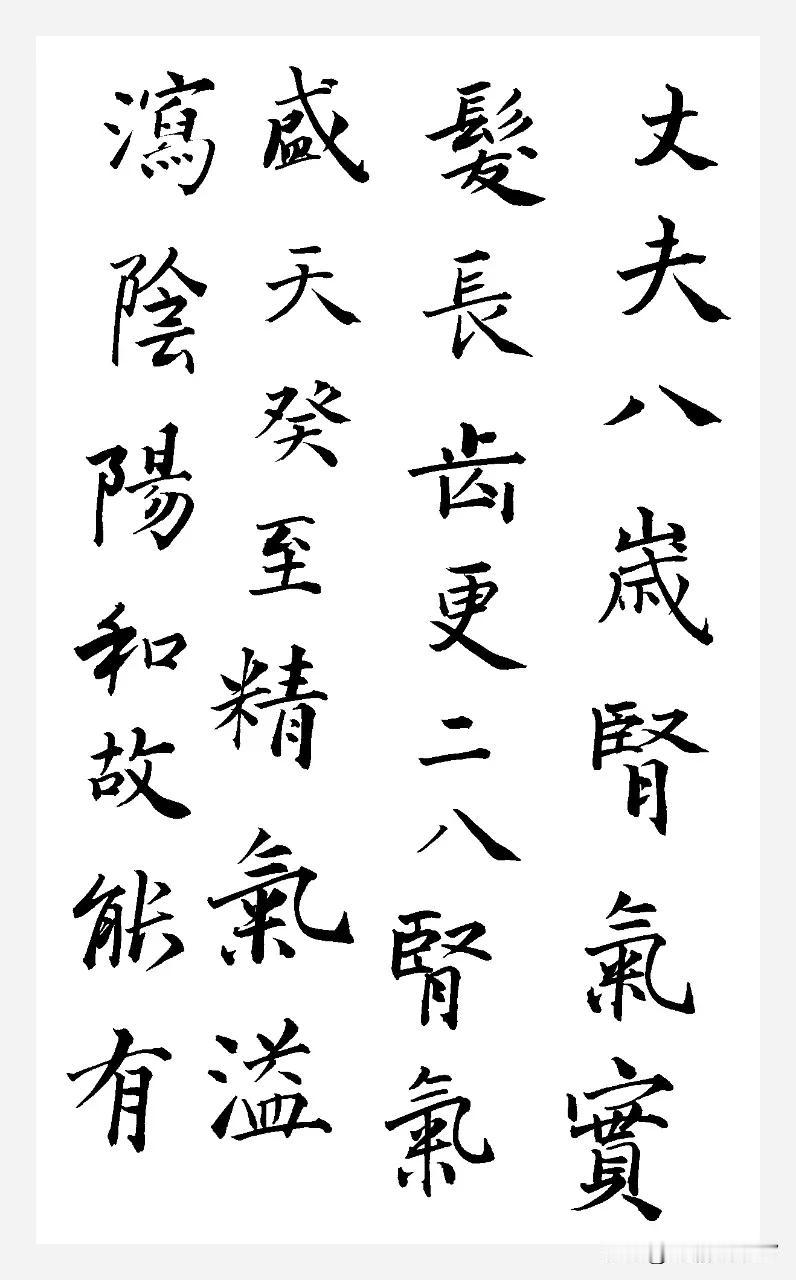 丈夫八歲腎氣實
髮長齒更二八腎氣
盛天癸至精氣溢
瀉陰陽和故能有